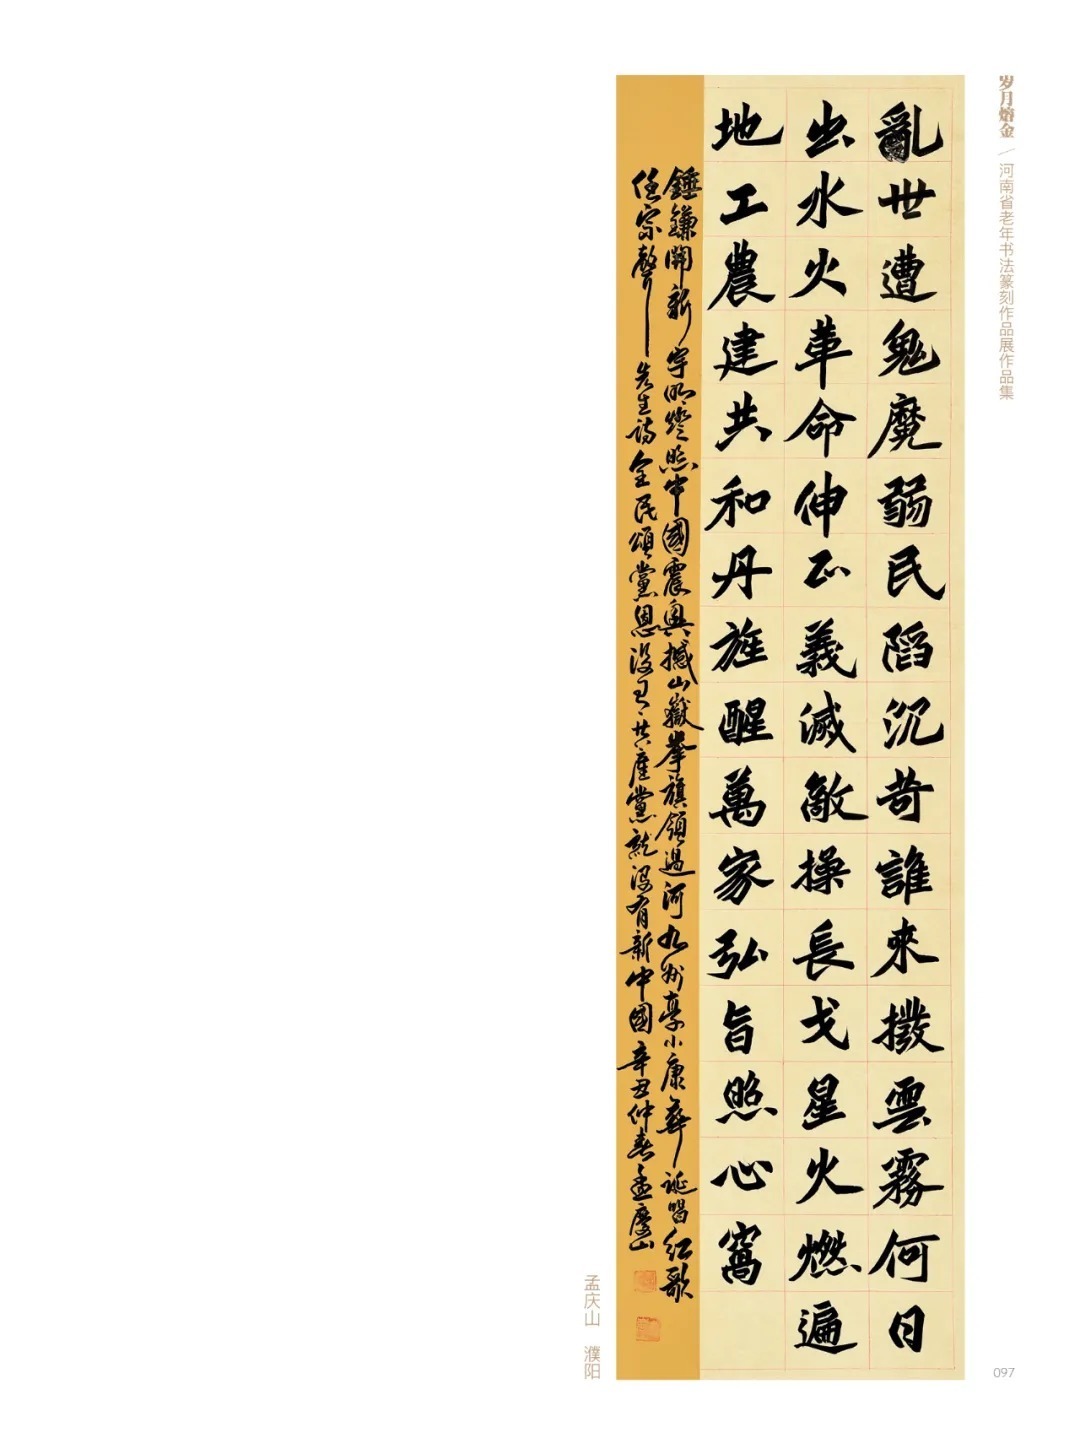 岁月熔金/河南省老年书法篆刻作品展作品集
亂世遭鬼魔弱民陷沉苛誰來撥雲霧何日
出水火革命伸正義滅敵操長戈星火燃遍
地工農建共和丹旌醒萬家弘旨照心窩
錘鐮開新宇明燈照中國震輿撼山嶽擧旗領過河九州享小康華誕唱紅歌
任宗聲先生詩全民頌黨恩沒有共產黨就沒有新中國辛丑仲春孟慶山
孟庆山 濮阳
097